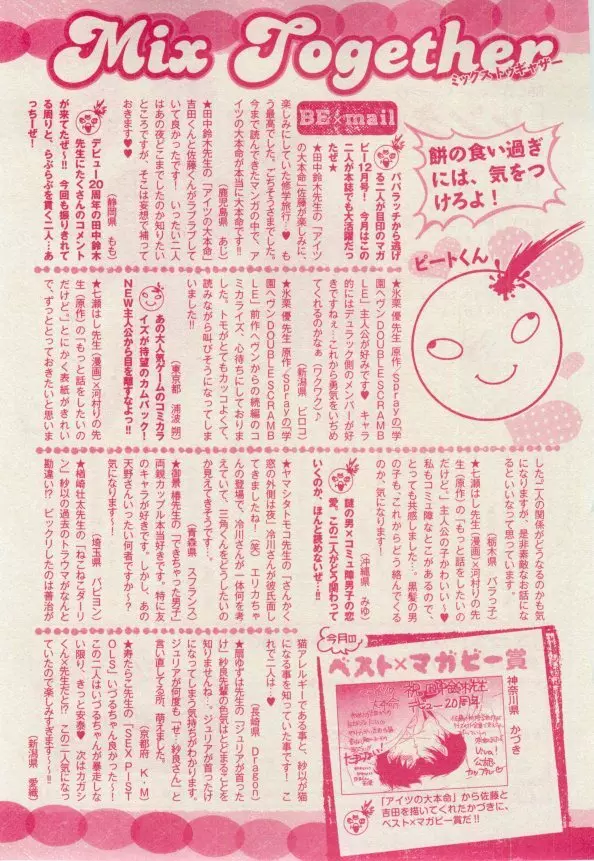 Mix Together
ミックス トゥギャザー
餅の食い過ぎ
には、気をつ
けろよ！
ビートくん
BE×mail
パパラッチから逃げ
る二人が目印のマガ
ビー12月号！　今月はこの
二人が本誌でも大活躍だっ
たぜ★
★田中鈴木先生の「アイツ
の大本命」に佐藤が楽しみに、
楽しみにしていた修学旅行♥　も
う最高でした。ごちそうさまでした。
今まで読んできたマンガの中で、ア
イツの大本命が本当に大本命です。
（鹿児島県　あじ）
★田中鈴木先生の「アイツの大本命」
吉田くんと佐藤くんがラブラブして
いて良かったです！　いったい二人
はあの夜どこまでしたのか知りたい
ところですが、そこは妄想で補って
おきます♥♥
（静岡県　もも）
デビュー20周年の田中鈴木
先生にたくさんのコメント
が来てたぜ〜!!　今回も振りきれて
る周りと、らぶらぶを貫く二人…あ
っちーぜ！
★氷栗 優先生 原作／Sprayの「学
園ヘヴンDOUBLE SCRAMB
LE」主人公が好みです♥　キャラ
的にはデュラック側のメンバーが好
きですねぇ…これから勇気をいぢめ
てくれるのかなぁ（ワクワク）♪
（新潟県　ピロコ）
★氷栗 優先生 原作／Sprayの「学
園ヘヴンDOUBLE SCRAMB
LE」前作ヘヴンからの続編のコ
ミカライズ、心待ちにしておりま
した。トモがとてもカッコよくて、
読みながら叫びそうになってしま
いました!!
（東京都　浦波 朔）
あの大人気ゲームのコミカラ
イズが待望のカムバック！
NEW主人公から目を離すなよっ!!
★七瀬はし先生（漫画）×河村りの先
生（原作）の「もっと話をしたいの
だけど。」とにかく表紙がきれい
で、ずっととっておきたいと思いま
した。二人の関係がどうなるのかも気
になりますが、是非素敵なお話にな
るといいなって思っています。
（栃木県　バラっ子）
★七瀬はし先生（漫画）×河村りの先
生（原作）の「もっと話をしたいの
だけど。」主人公の子かわいい〜♥
私もコミュ障なとこがあるので、
とっても共感しました…黒髪の男
の子も、これからどう絡んでくる
のか、気になります！
（沖縄県　みゆ）
謎の男×コミュ障男子の恋
愛、この二人がどう関わって
いくのか、ほんと読めないぜ…!!
★ヤマシタトモコ先生の「さんかく
窓の外側は夜」冷川さんが彼氏面し
てきましたね！（笑）エリカちゃ
んの登場で、冷川さんが一体何を考
えていて、三角くんをどうしたいの
か見えてきそうです…
（青森県　スフランス）
★御景 椿先生の「できちゃった男子」
両親カップル本当好きです。特に友
のキャラが好きです。しかし、あの
天野さんいったい何者ですか〜？
気になります〜！
（埼玉県　パピヨン）
★楢崎壮太先生の「ねこねこダーリ
ン」紗以の過去のトラウマがなんと
勘違い!?　ビックリしたのは善治が
猫アレルギーである事と、紗以が猫
になる事を知っていた事です！　こ
れで二人は…♥
（長崎県　Dragon）
★扇ゆずは先生の「ジュリアが首った
け」紗良先輩の色気はとどまることを
知りませんね…。ジュリアが首ったけ
になってしまう気持ちがわかります。
ジュリアが何度も「せ、紗良さん」と
言い直してる所、萌えました。
（京都府　K・M）
★寿たらこ先生の「SEX PIST
OLS」いづるちゃん良かった〜！
この二人はいづるちゃんが暴走しな
い限り、きっと安泰♥　次はカガシ
くん×先生だと!?　この二人気になっ
ていたので楽しみすぎます〜!!
（新潟県　愛織）
今月の
ベスト×マガビー賞
神奈川県　かづき
祝 田中鈴木先生
デビュー20周年
Viva!
公認
カップル♥
「アイツの大本命」から佐藤と
吉田を描いてくれたかづきに、
ベスト×マガビー賞だ!!